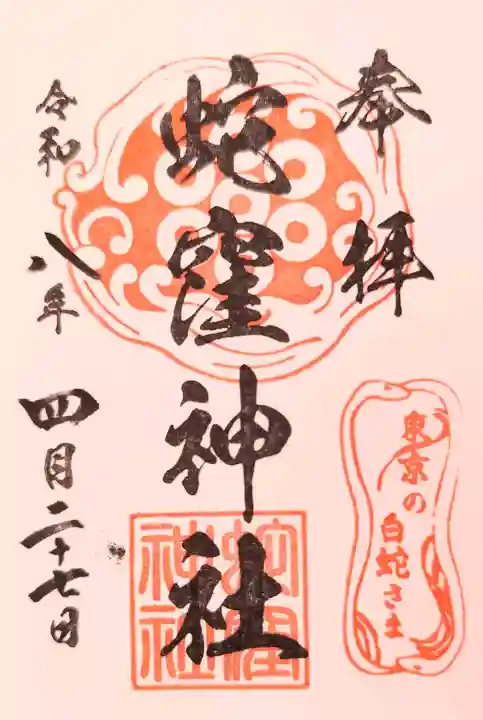 奉拝
蛇窪神社
蛇窪
神社
東京の
白蛇さま
令和八年
四月二十七日